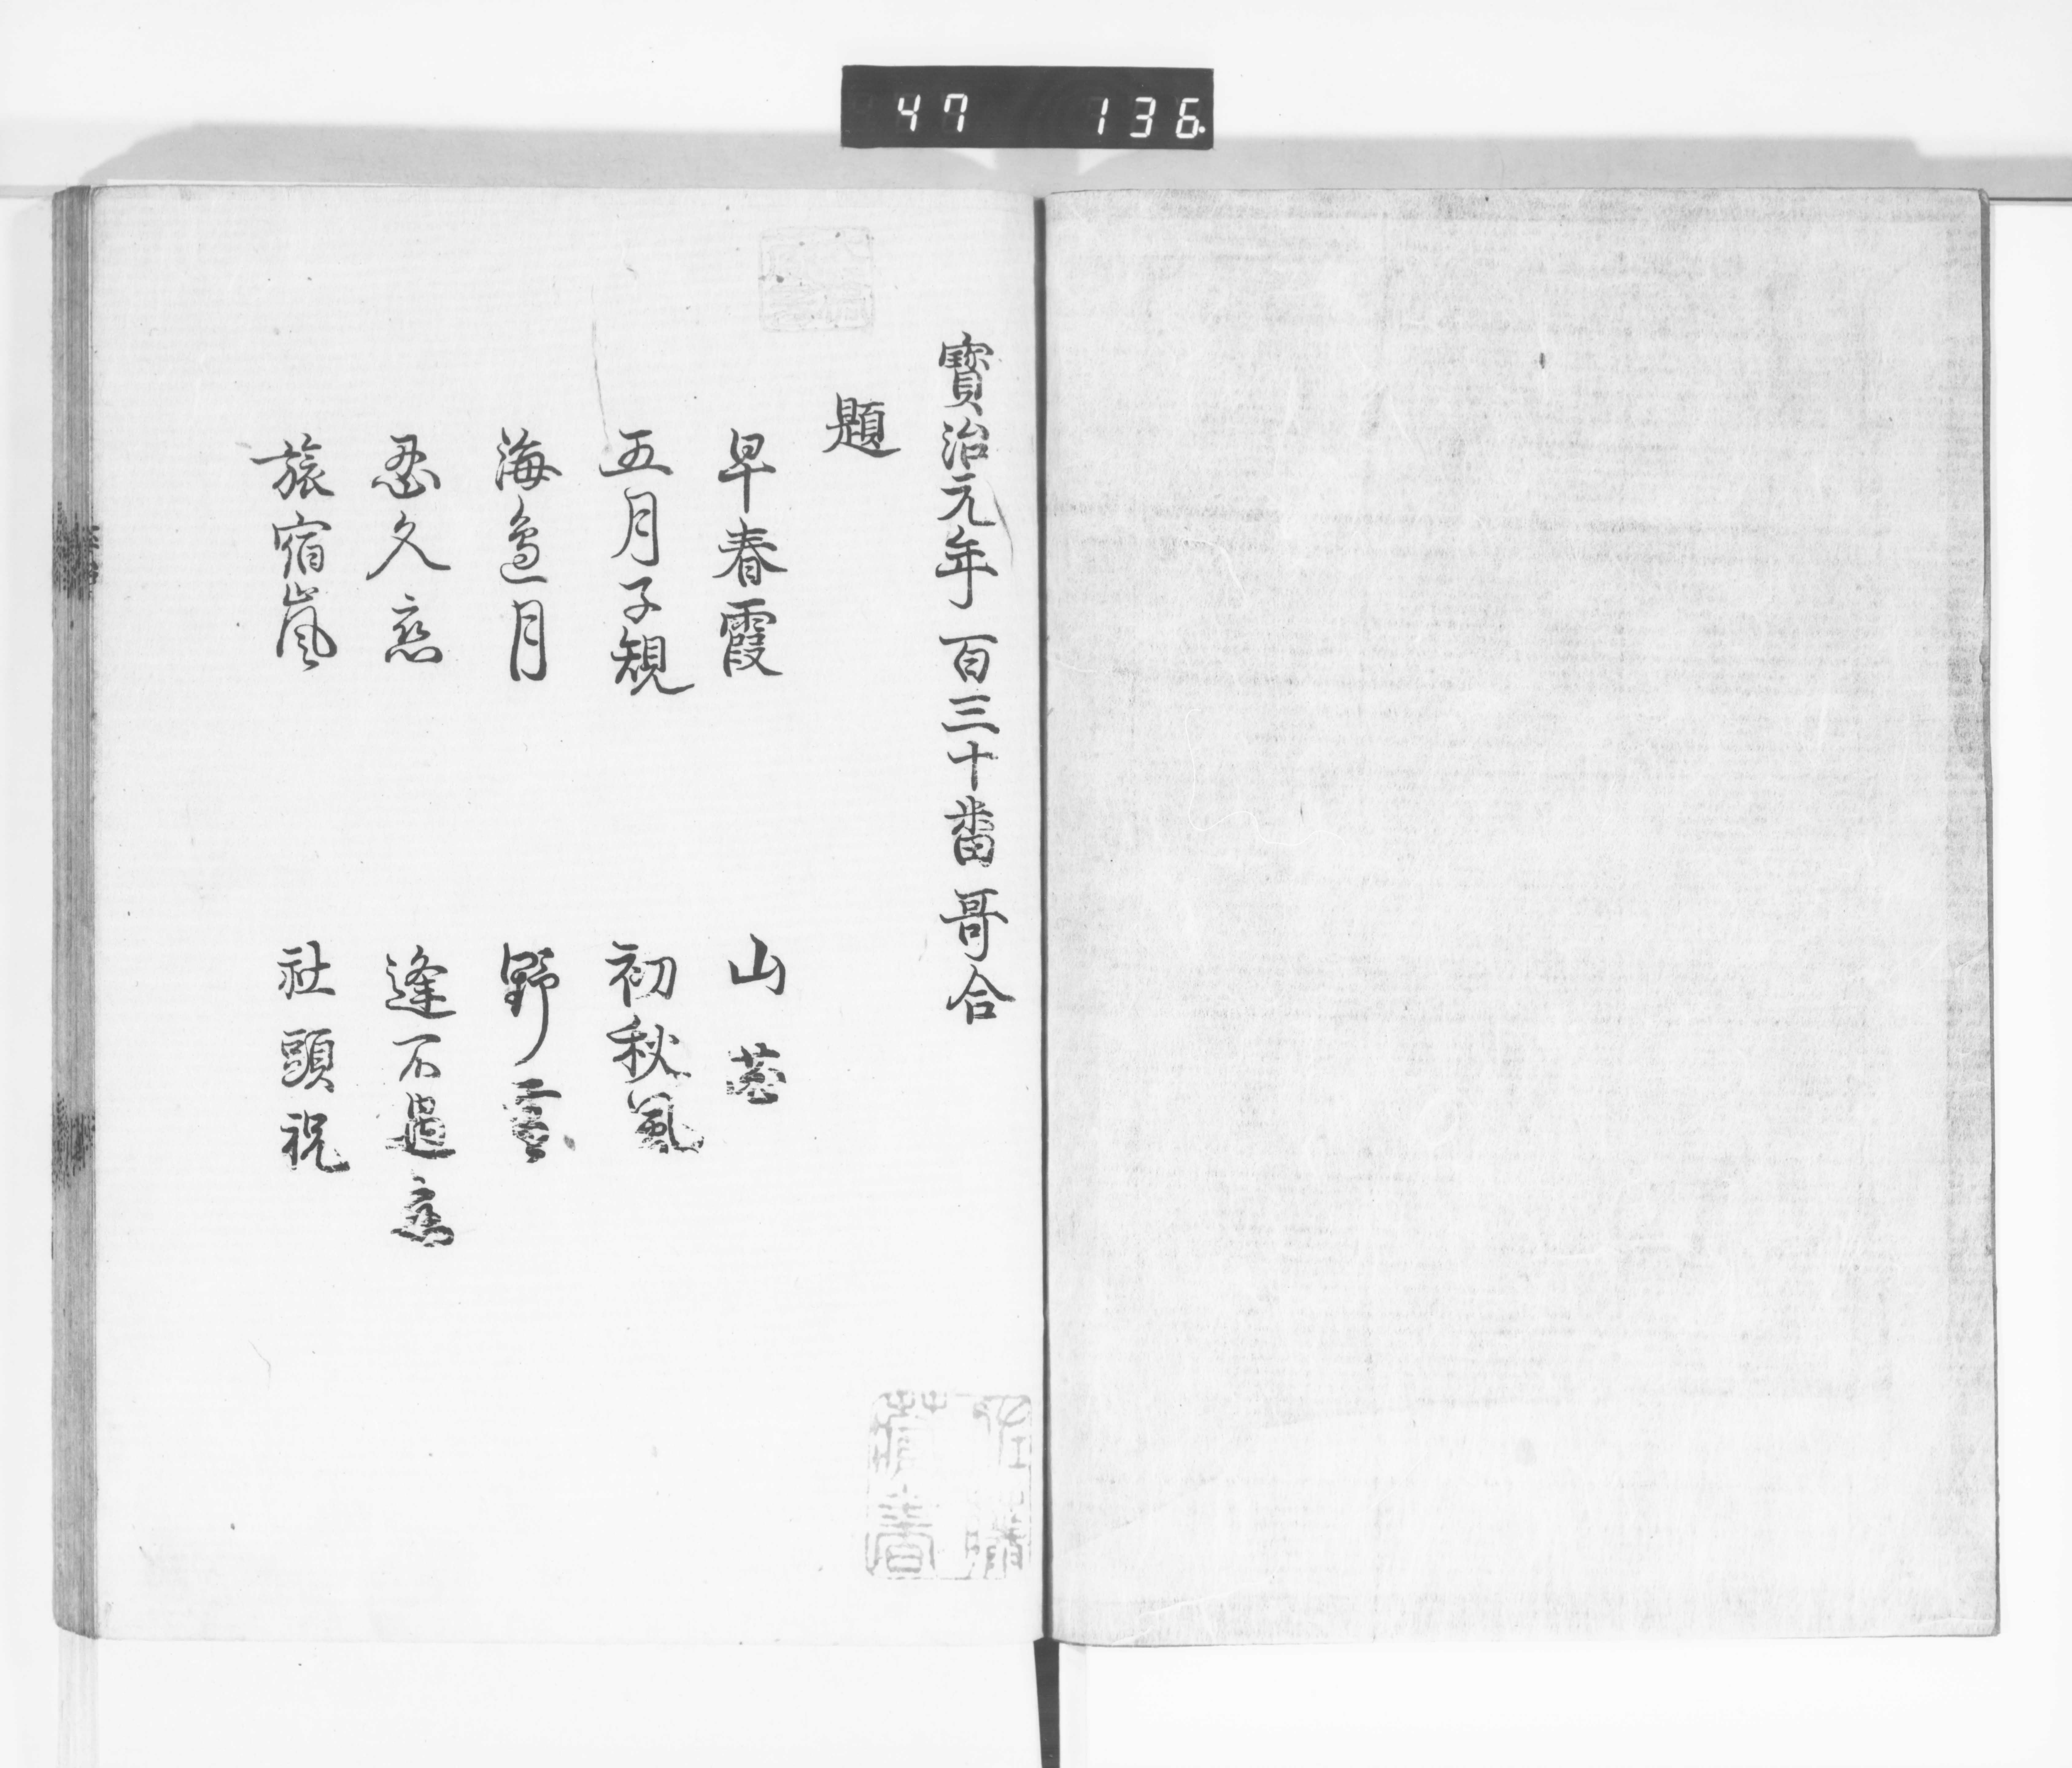 47 136
寳治元年 百三十番哥合
題
早春霞 山花
五月子規 初秋風
海邉月 野雪
忍久恋 逢不遇恋
旅宿嵐 社頭祝